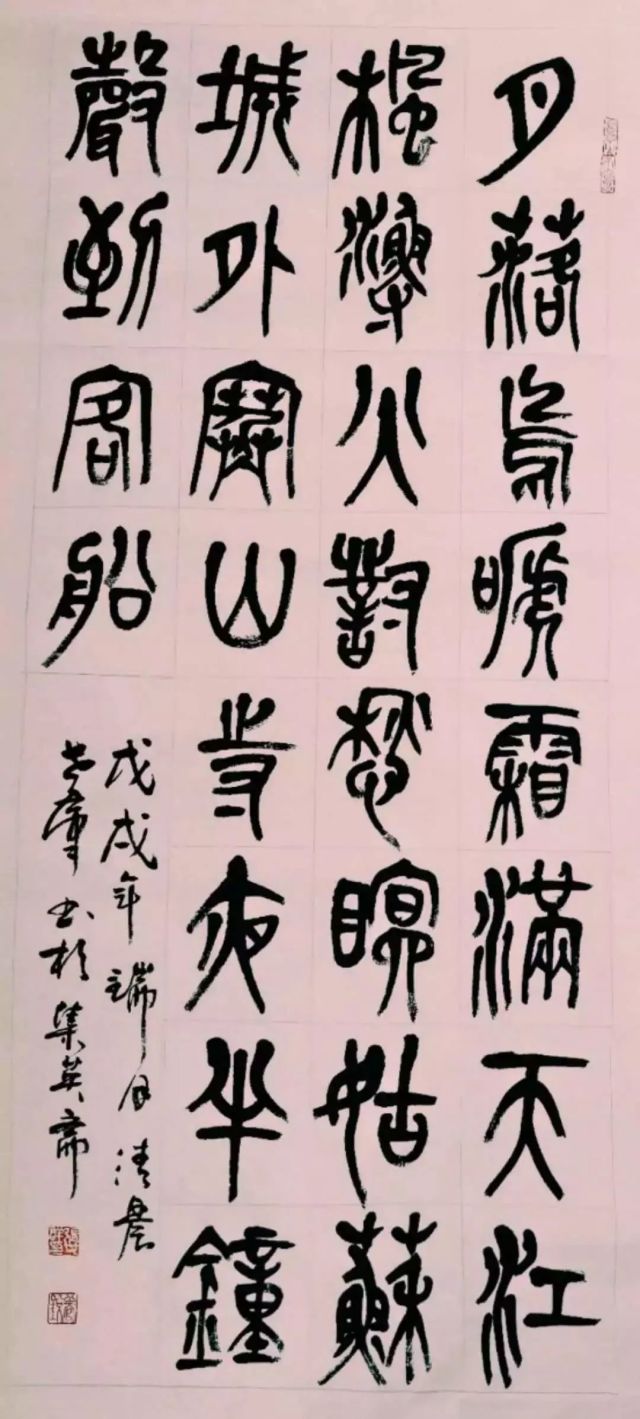 月落烏啼霜滿天江
楓漁火對愁眠姑蘇
城外寒山寺夜半鐘
聲到客船
戊戌年端月清晨
书於集英齋